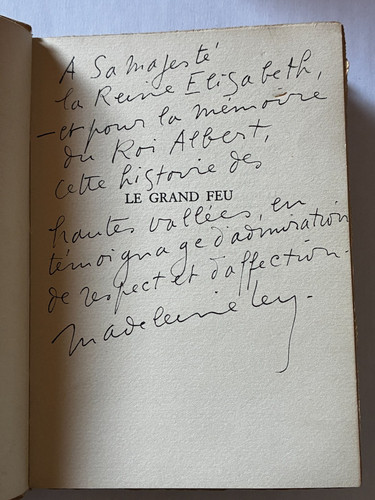 A Sa majesté
la Reine Elizabeth,
– et pour la mémoire
du Roi Albert,
cette histoire des
LE GRAND FEU
hautes vallées, en
témoignage d'admiration
de respect et d'affection.
Madeleine Ley.